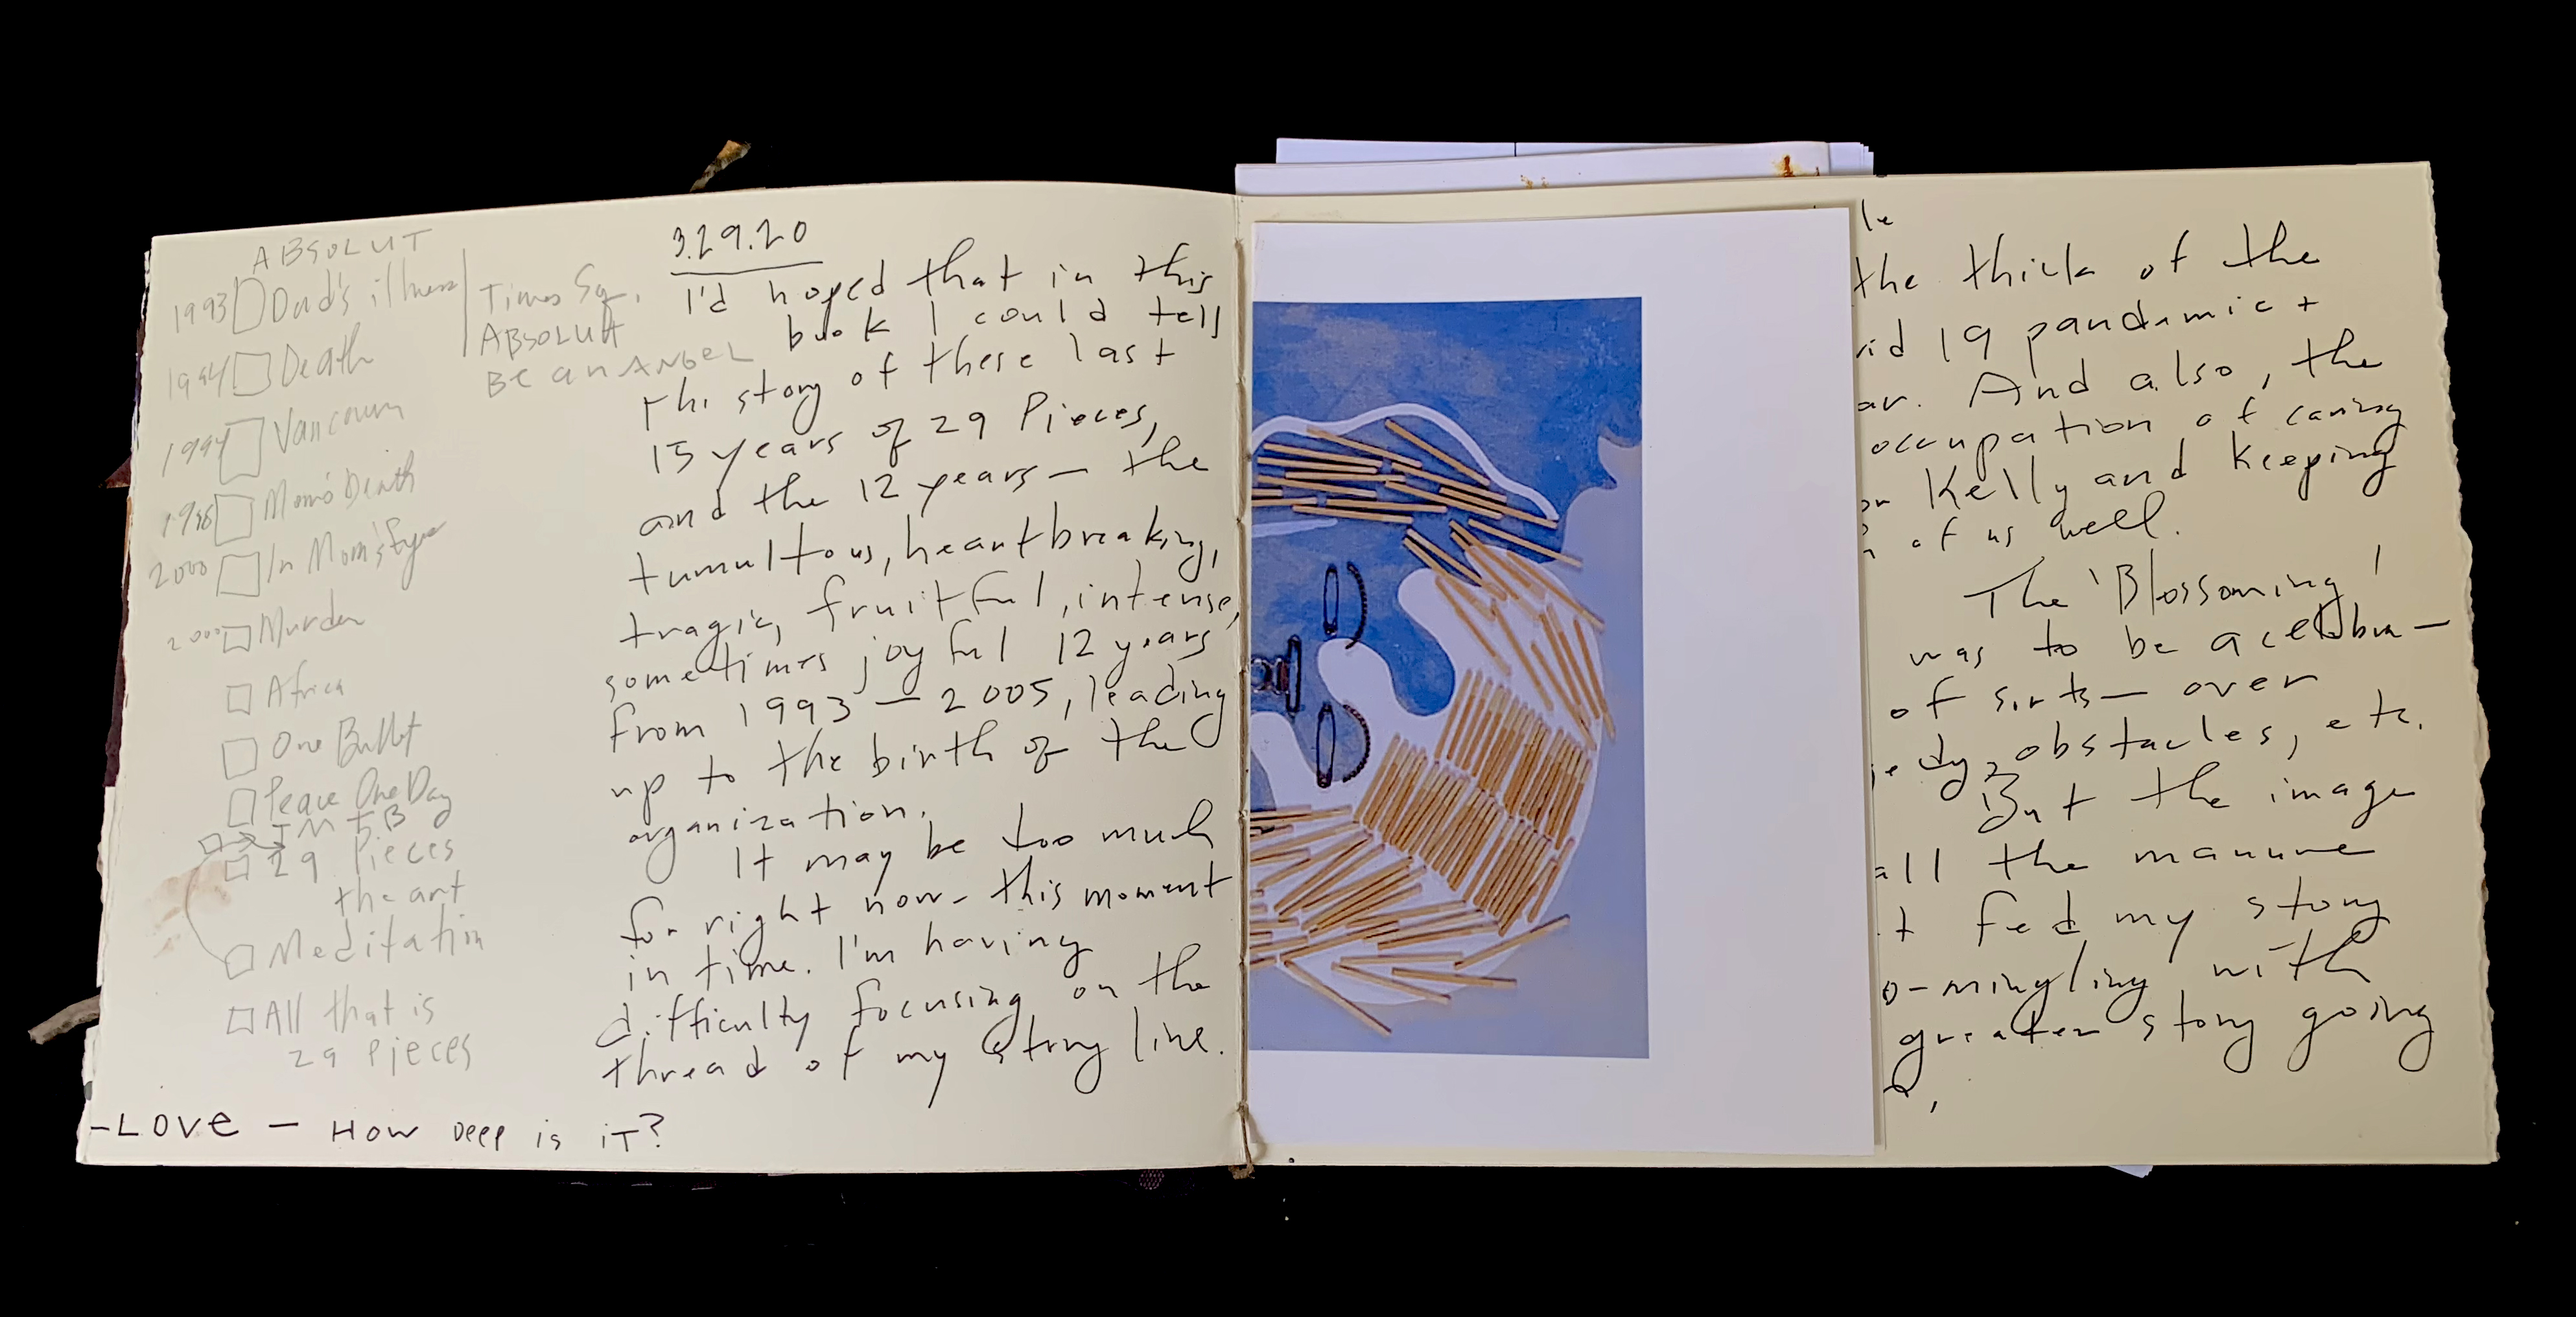 ABSOLUT
1993 Dad's illness
Times Sq.
ABSOLUT
BE an ANGEL
1994 Death
1994 Vancouver
Mom's Death
2000 In Mom's Eyes
2000 Murder
Africa
One Bullet
Peace One Day
29 Pieces
the art
Meditation
All that is
29 Pieces
3.29.20
I'd hoped that in this
book I could tell
the story of these last
15 years of 29 Pieces,
and the 12 years — the
tumultous, heartbreaking,
tragic, fruitful, intense,
sometimes joyful 12 years
from 1993 — 2005, leading
up to the birth of the
organization.
It may be too much
for right now - this moment
in time. I'm having
difficulty focusing on the
thread of my story line.
-LOVE — HOW DEEP is iT?
the thick of the
19 pandemic +
And also, the
occupation of caring
Kelly and keeping
of us well.
The 'Blossoming'
was to be a celebra-
of sorts — over
obstacles, etc.
But the image
all the manure
fed my story
o-mingling with
greater story going